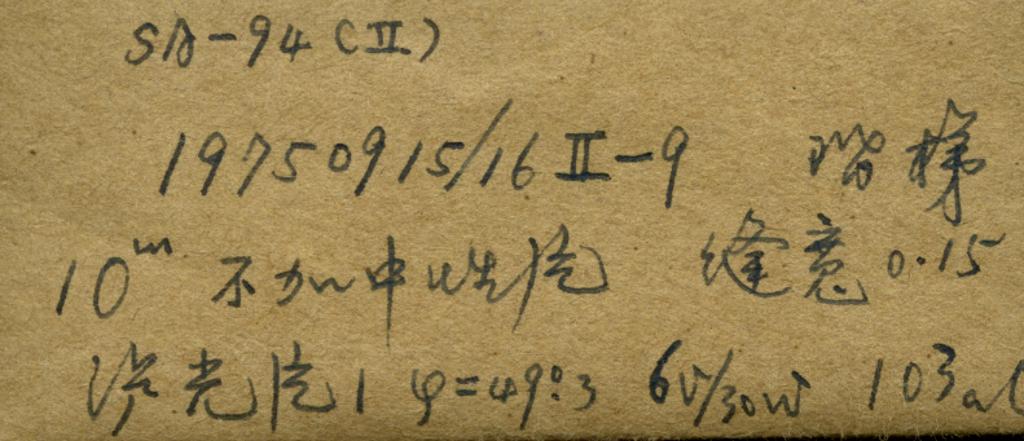 SA-94(II)
19750915/16 II-9 阶梯
10ᵐ 不加中性片 缝宽 0.15
滤光片1 φ=49°.3 6V/30W 103a